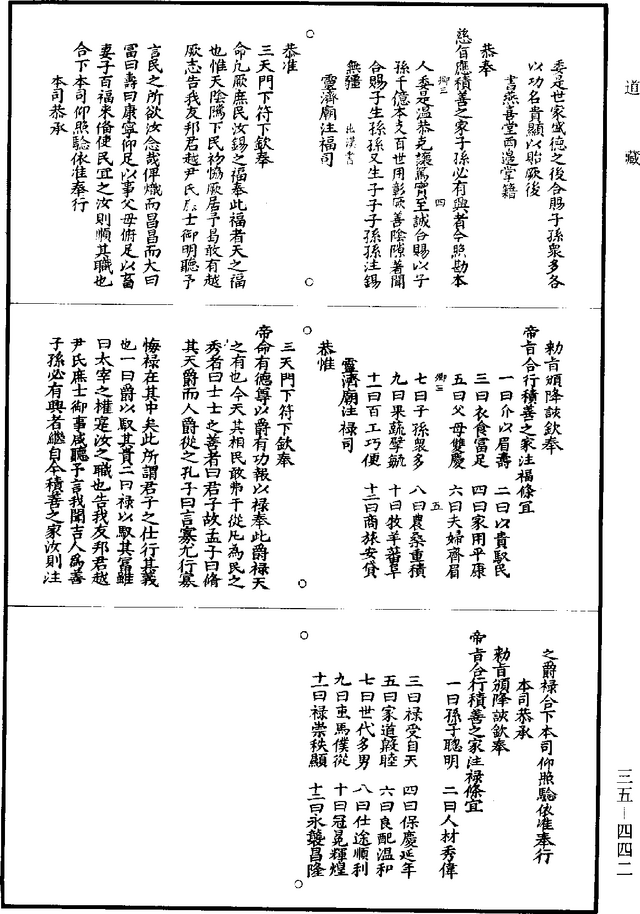 道藏
委是世家盛德之後合賜子孫衆多各
以功名貴顯以貽厥後
書燕喜堂西邊掌籍
恭奉
慈旨應積善之家子孫必有興者今照勘本
卿三 四
人委是溫恭克讓篤實至誠合賜以子
孫千億本支百世用彰厥善陰隲著聞
合賜子生孫孫又生子子子孫孫注錫
無疆 出漢書
靈濟廟注福司
恭准
三天門下符下欽奉
命凡厥庶民汝錫之福奉此福者天之福
也惟天陰隲下民相恊厥居予曷敢有越
厥志告我友邦君越尹氏庶士御明聽予
言民之所欲汝念哉俾熾而昌昌而大曰
富曰壽曰康寧仰足以事父母俯足以畜
妻子百福來俻使民宜之汝則順其職也
合下本司仰照驗依准奉行
本司恭承
勑旨頒降該欽奉
帝旨合行積善之家注福條宜
一曰介以眉壽 二曰以貴馭民
三曰衣食富足 四曰家用平康
五曰父母雙慶 六曰夫婦齊眉
卿三 五
七曰子孫衆多 八曰農桑重積
九曰果蔬孳毓 十曰牧羊蕃阜
十一曰百工巧便 十二曰商旅安貸
靈濟廟注祿司
恭惟
三天門下符下欽奉
帝命有德尊以爵有功報以祿奉此爵祿天
之有也今天其相民敢弗于從凡為民之
秀者曰士士之善者曰君子故孟子曰脩
其天爵而人爵從之孔子曰言寡尤行寡
悔祿在其中矣此所謂君子之仕行其義
也一曰爵以馭其貴二曰祿以馭其富雖
曰太宰之權寔汝之職也告我友邦君越
尹氏庶士御事咸聽予言我聞吉人為善
子孫必有興者繼自今積善之家汝則注
之爵祿合下本司仰照驗依准奉行
本司恭承
勑旨頒降該欽奉
帝旨合行積善之家注祿條宜
一曰孫子聰明 二曰人材秀偉
三曰祿受自天 四曰保慶延年
五曰家道敦睦 六曰良配溫和
七曰世代多男 八曰仕途順利
九曰車馬僕從 十曰冠冕輝煌
十一曰祿崇秩顯 十二曰永襲昌隆
三五-四四二